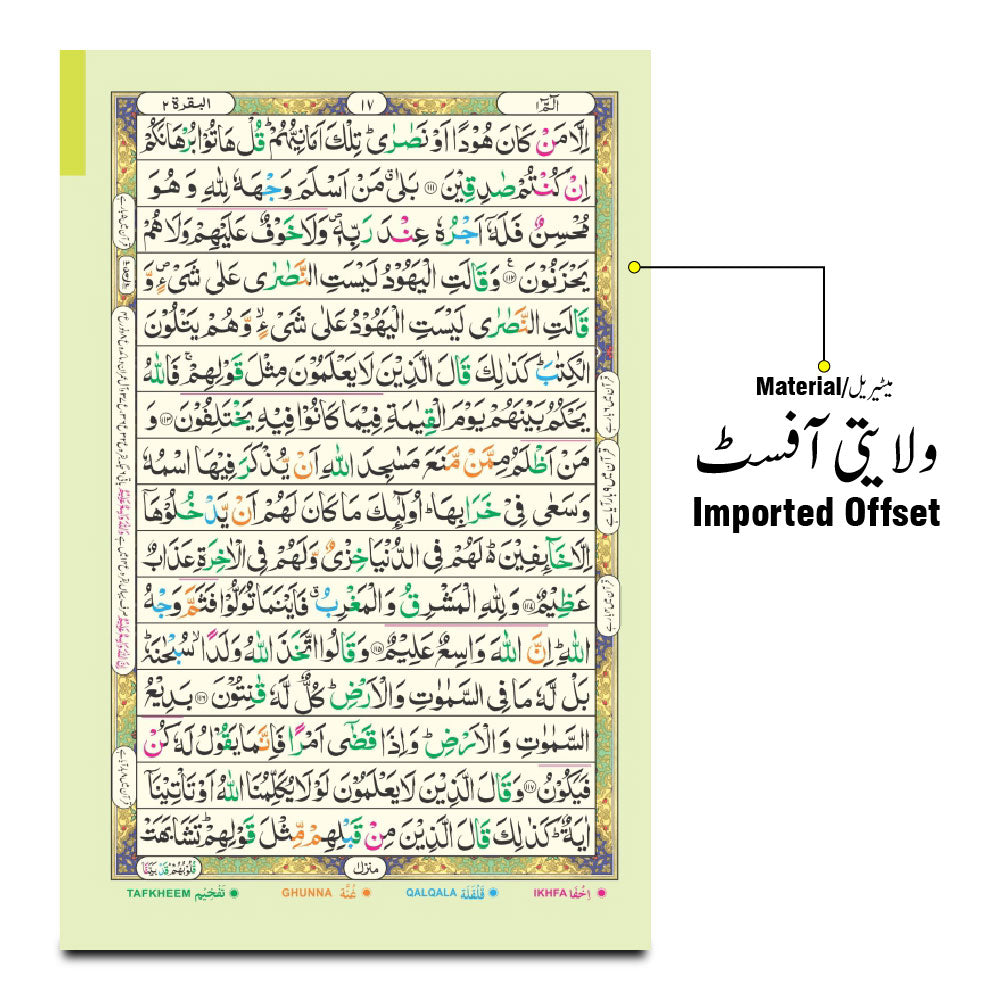 البقرة ٢
١٧
الٓمّٓ ١
اِلَّا مَنْ كَانَ هُوْدًا اَوْ نَصٰرٰى ؕ تِلْكَ اَمَانِيُّهُمْ ؕ قُلْ هَاتُوْا بُرْهَانَكُمْ
اِنْ كُنْتُمْ صٰدِقِيْنَ ﴿۱۱۱﴾ بَلٰى ۗ مَنْ اَسْلَمَ وَجْهَهٗ لِلّٰهِ وَ هُوَ
مُحْسِنٌ فَلَهٗۤ اَجْرُهٗ عِنْدَ رَبِّهٖ ۪ وَلَا خَوْفٌ عَلَيْهِمْ وَلَا هُمْ
يَحْزَنُوْنَ ﴿۱۱۲﴾ وَقَالَتِ الْيَهُوْدُ لَيْسَتِ النَّصٰرٰى عَلٰى شَىْءٍ ۪ وَّ
قَالَتِ النَّصٰرٰى لَيْسَتِ الْيَهُوْدُ عَلٰى شَىْءٍ ۙ وَّهُمْ يَتْلُوْنَ
الْكِتٰبَ ؕ كَذٰلِكَ قَالَ الَّذِيْنَ لَا يَعْلَمُوْنَ مِثْلَ قَوْلِهِمْ ۚ فَاللّٰهُ
يَحْكُمُ بَيْنَهُمْ يَوْمَ الْقِيٰمَةِ فِيْمَا كَانُوْا فِيْهِ يَخْتَلِفُوْنَ ﴿۱۱۳﴾ وَ
مَنْ اَظْلَمُ مِمَّنْ مَّنَعَ مَسٰجِدَ اللّٰهِ اَنْ يُّذْكَرَ فِيْهَا اسْمُهٗ
وَسَعٰى فِىْ خَرَابِهَا ؕ اُولٰٓئِكَ مَا كَانَ لَهُمْ اَنْ يَّدْخُلُوْهَاۤ
اِلَّا خَآئِفِيْنَ ؕ۬ لَهُمْ فِى الدُّنْيَا خِزْىٌ وَّلَهُمْ فِى الْاٰخِرَةِ عَذَابٌ
عَظِيْمٌ ﴿۱۱۴﴾ وَلِلّٰهِ الْمَشْرِقُ وَالْمَغْرِبُ ۗ فَاَيْنَمَا تُوَلُّوْا فَثَمَّ وَجْهُ
اللّٰهِ ؕ اِنَّ اللّٰهَ وَاسِعٌ عَلِيْمٌ ﴿۱۱۵﴾ وَقَالُوا اتَّخَذَ اللّٰهُ وَلَدًا ۙ سُبْحٰنَهٗ ؕ
بَلْ لَّهٗ مَا فِى السَّمٰوٰتِ وَالْاَرْضِ ؕ كُلٌّ لَّهٗ قٰنِتُوْنَ ﴿۱۱۶﴾ بَدِيْعُ
السَّمٰوٰتِ وَالْاَرْضِ ؕ وَاِذَا قَضٰٓى اَمْرًا فَاِنَّمَا يَقُوْلُ لَهٗ كُنْ
فَيَكُوْنُ ﴿۱۱۷﴾ وَقَالَ الَّذِيْنَ لَا يَعْلَمُوْنَ لَوْلَا يُكَلِّمُنَا اللّٰهُ اَوْ تَاْتِيْنَاۤ
اٰيَةٌ ؕ كَذٰلِكَ قَالَ الَّذِيْنَ مِنْ قَبْلِهِمْ مِّثْلَ قَوْلِهِمْ ؕ تَشَابَهَتْ
منزل ۱
TAFKHEEM تَفْخِيْم
GHUNNA غُنَّة
QALQALA قَلْقَلَة
IKHFA اِخْفَا
Material/میٹیریل
ولایتی آفسٹ
Imported Offset